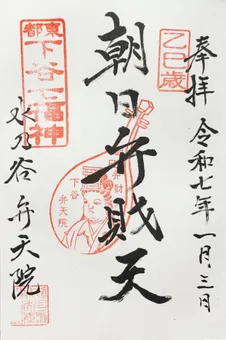 奉拝 令和七年一月三日
乙巳歳
朝日弁財天
下谷
弁天院
東都
下谷七福神
水乃谷 弁天院